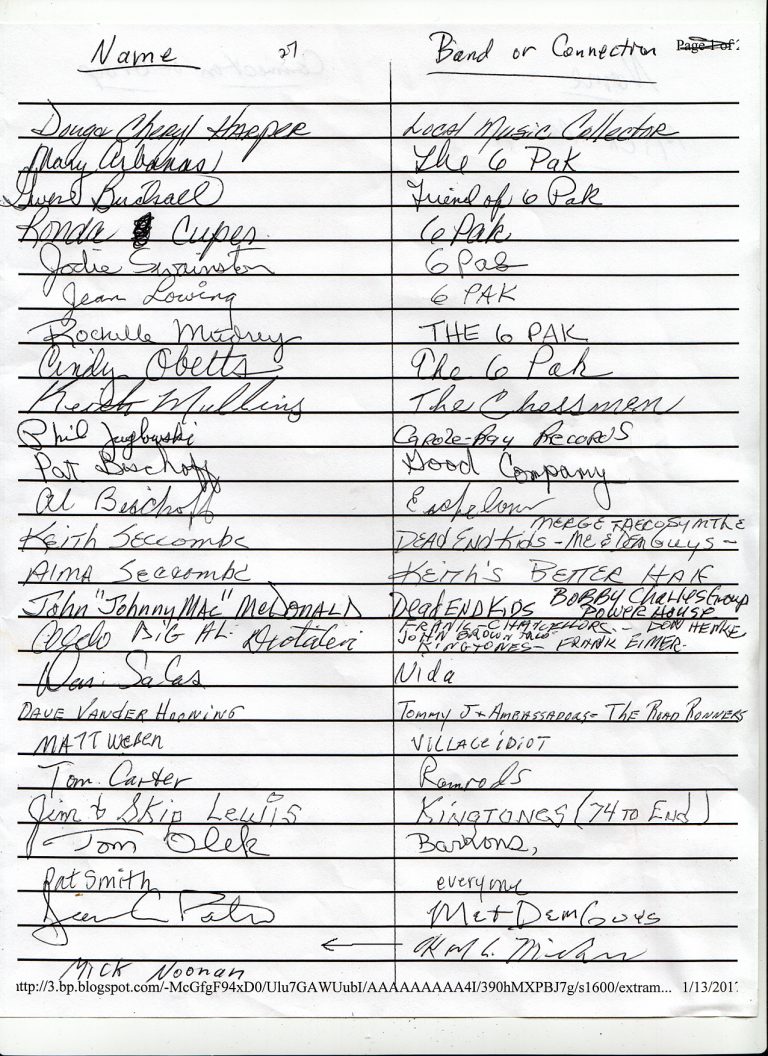 Name 27 Band or Connection Page 1 of 2
Doug & Cheryl Harper Local Music Collector
Mary Urbanas The 6 Pak
Gwen Birdsall Friend of 6 Pak
Ronda Cupes 6 Pak
Jodie Swainston 6 Pak
Jean Lowing 6 PAK
Rochelle THE 6 PAK
Cindy Obetts The 6 Pak
Keith Mullins The Chessmen
Phil Carole-Ray RECORDS
Pat Bischoff Good Company
Al Bischoff
MERGE TAECOSYMTHE
KEITH Seccombe DEAD END KIDS - Me & DEM Guys -
ALMA Seccombe KEITH'S BETTER HALF
John "Johnny MAC" McDONALD DEAD END KIDS BOBBY Charles Group
POWER HOUSE
BIG AL FRANK - CHANCELLORS - DON HENKE
JOHN BROWN
KINGTONES - FRANK EIMER.
Salas Nida
DAVE VANDER HOONING Tommy J + AMBASSADORS - THE ROAD RUNNERS
MATT WEBER VILLAGE IDIOT
Tom Carter Ramrods
Jim & Skip Lewis KINGTONES (74 TO END)
Tom Olek Barrons,
Pat Smith everyone
Me + Dem Guys
←
Mick Noonan
http://3.bp.blogspot.com/-McGfgF94xD0/Ulu7GAWUubI/AAAAAAAAA4I/390hMXPBJ7g/s1600/extram... 1/13/2017